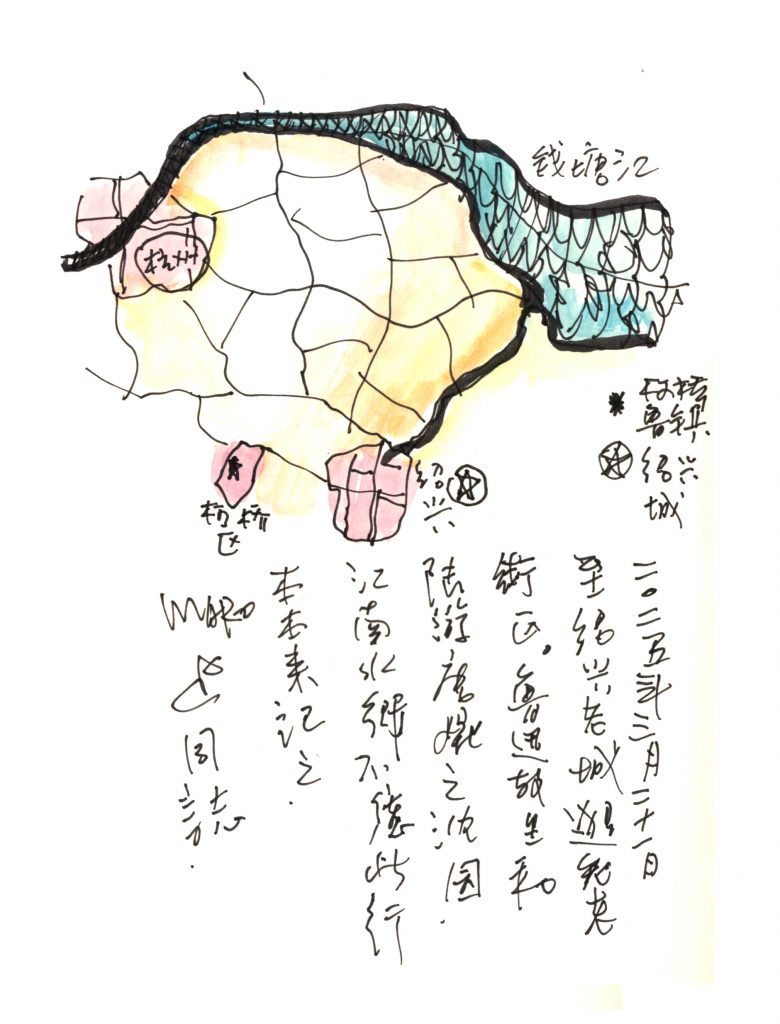 钱塘江
杭州
柯桥
鲁镇
绍兴
城
绍兴
柯桥
区
二〇二五年三月二十一日
至绍兴老城
街区。鲁迅故里和
陆游唐婉之沈园.
江南水乡不虚此行
本本来记之.
同志.